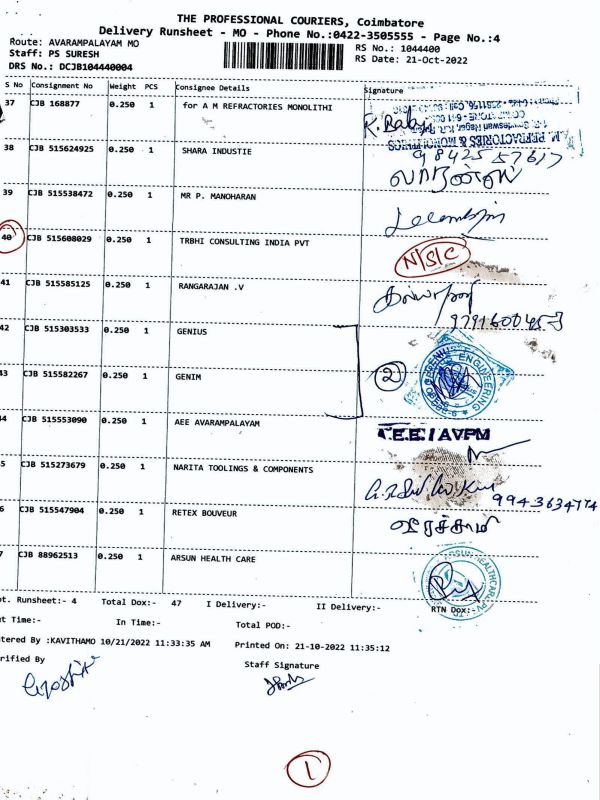 THE PROFESSIONAL COURIERS, Coimbatore
Delivery Runsheet - MO - Phone No.:0422-3505555 - Page No.:4
Route: AVARAMPALAYAM MO
Staff: PS SURESH
DRS No.: DCJB104440004
RS No.: 1044400
RS Date: 21-Oct-2022
S No Consignment No Weight PCS Consignee Details Signature
37 CJB 168877 0.250 1 for A M REFRACTORIES MONOLITHI
M. REFRACTORIES & MONOLITHICS
R. Baby
38 CJB 515624925 0.250 1 SHARA INDUSTIE
98425 57617
39 CJB 515538472 0.250 1 MR P. MANOHARAN
40 CJB 515608029 0.250 1 TRBHI CONSULTING INDIA PVT N/S/C
41 CJB 515585125 0.250 1 RANGARAJAN .V
42 CJB 515303533 0.250 1 GENIUS
43 CJB 515582267 0.250 1 GENIM 2
ENGINEERING
44 CJB 515553090 0.250 1 AEE AVARAMPALAYAM
A.E.E / AVPM
45 CJB 515273679 0.250 1 NARITA TOOLINGS & COMPONENTS
9943634774
46 CJB 515547904 0.250 1 RETEX BOUVEUR
47 CJB 88962513 0.250 1 ARSUN HEALTH CARE
ARSUN HEALTHCARE
nt. Runsheet:- 4 Total Dox:- 47 I Delivery:- II Delivery:- RTN Dox:-
ut Time:- In Time:- Total POD:-
tered By :KAVITHAMO 10/21/2022 11:33:35 AM Printed On: 21-10-2022 11:35:12
rified By Staff Signature
1